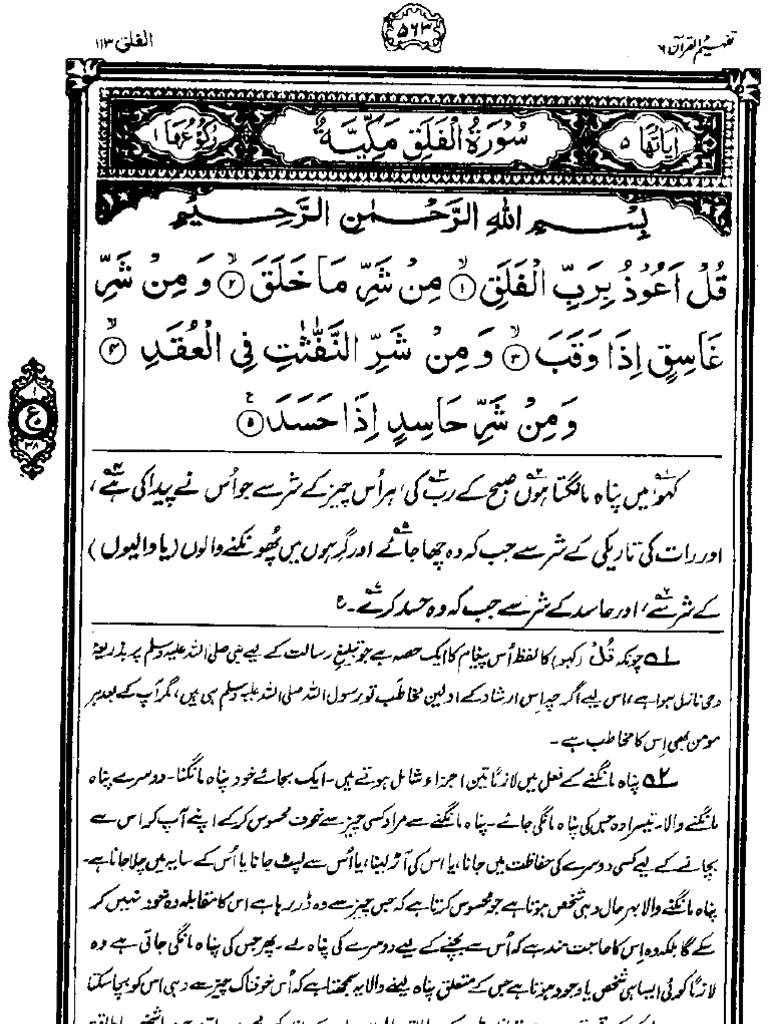 تفہیم القرآن ۶
۵۶۳
الفلق ۱۱۳
اٰيَاتُهَا ۵
سُوْرَةُ الْفَلَقِ مَكِّيَّةٌ
رُكُوْعُهَا ۱
بِسْمِ اللهِ الرَّحْمٰنِ الرَّحِيْمِ
قُلْ اَعُوْذُ بِرَبِّ الْفَلَقِ ۙ﴿۱﴾ مِنْ شَرِّ مَا خَلَقَ ۙ﴿۲﴾ وَ مِنْ شَرِّ
غَاسِقٍ اِذَا وَقَبَ ۙ﴿۳﴾ وَ مِنْ شَرِّ النَّفّٰثٰتِ فِي الْعُقَدِ ۙ﴿۴﴾
وَ مِنْ شَرِّ حَاسِدٍ اِذَا حَسَدَ ﴿۵﴾ ع
۱
ع
۵
۳۸
کہو،۱؎ میں پناہ مانگتا ہوں۲؎ صبح کے رب۳؎ کی، ہر اُس چیز کے شر سے جو اُس نے پیدا کی ہے۴؎،
اور رات کی تاریکی کے شر سے جب کہ وہ چھا جائے۵؎ اور گرہوں میں پُھونکنے والوں (یا والیوں)
کے شر سے۶؎، اور حاسد کے شر سے جب کہ وہ حسد کرے۷؎۔ ع
۱؎ چونکہ قُلْ (کہو) کا لفظ اُس پیغام کا ایک حصہ ہے جو تبلیغِ رسالت کے لیے نبی صلی اللہ علیہ وسلم پر بذریعۂ
وحی نازل ہوا ہے، اس لیے اگرچہ اس ارشاد کے اولین مخاطَب تو رسول اللہ صلی اللہ علیہ وسلم ہی ہیں، مگر آپ کے بعد ہر
مومن بھی اِس کا مخاطب ہے۔
۲؎ پناہ مانگنے کے فعل میں لازماً تین اجزاء شامل ہوتے ہیں۔ ایک بجائے خود پناہ مانگنا۔ دوسرے پناہ
مانگنے والا۔ تیسرا وہ جس کی پناہ مانگی جائے۔ پناہ مانگنے سے مراد کسی چیز سے خوف محسوس کر کے اپنے آپ کو اس سے
بچانے کے لیے کسی دوسرے کی حفاظت میں جانا، یا اس کی آڑ لینا، یا اُس سے لپٹ جانا یا اُس کے سایہ میں چلا جانا ہے۔
پناہ مانگنے والا بہرحال وہی شخص ہوتا ہے جو محسوس کرتا ہے کہ جس چیز سے وہ ڈر رہا ہے اس کا مقابلہ وہ خود نہیں کر
سکے گا بلکہ وہ اِس کا حاجت مند ہے کہ اُس سے بچنے کے لیے دوسرے کی پناہ لے۔ پھر جس کی پناہ مانگی جاتی ہے وہ
لازماً کوئی ایسا ہی شخص یا وجود ہوتا ہے جس کے متعلق پناہ لینے والا یہ سمجھتا ہے کہ اُس خوفناک چیز سے وہی اس کو بچا سکتا